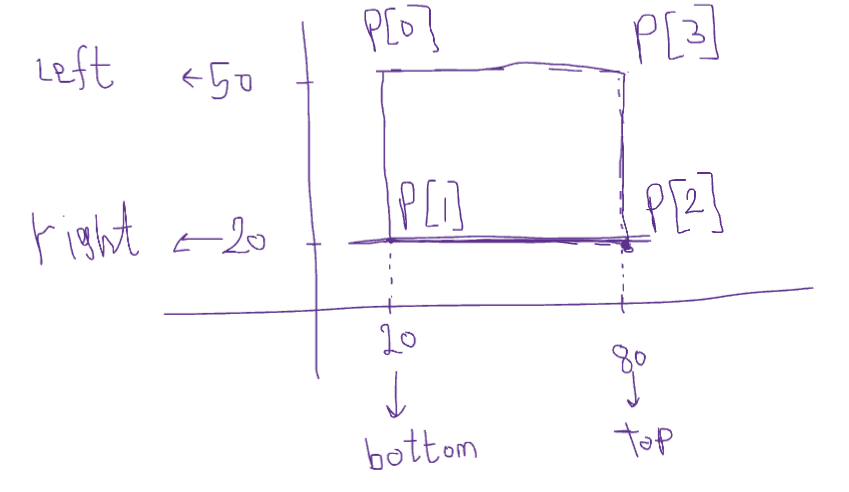 P[0]
P[3]
Left ←50
P[1]
P[2]
right ←20
20
80
bottom
top